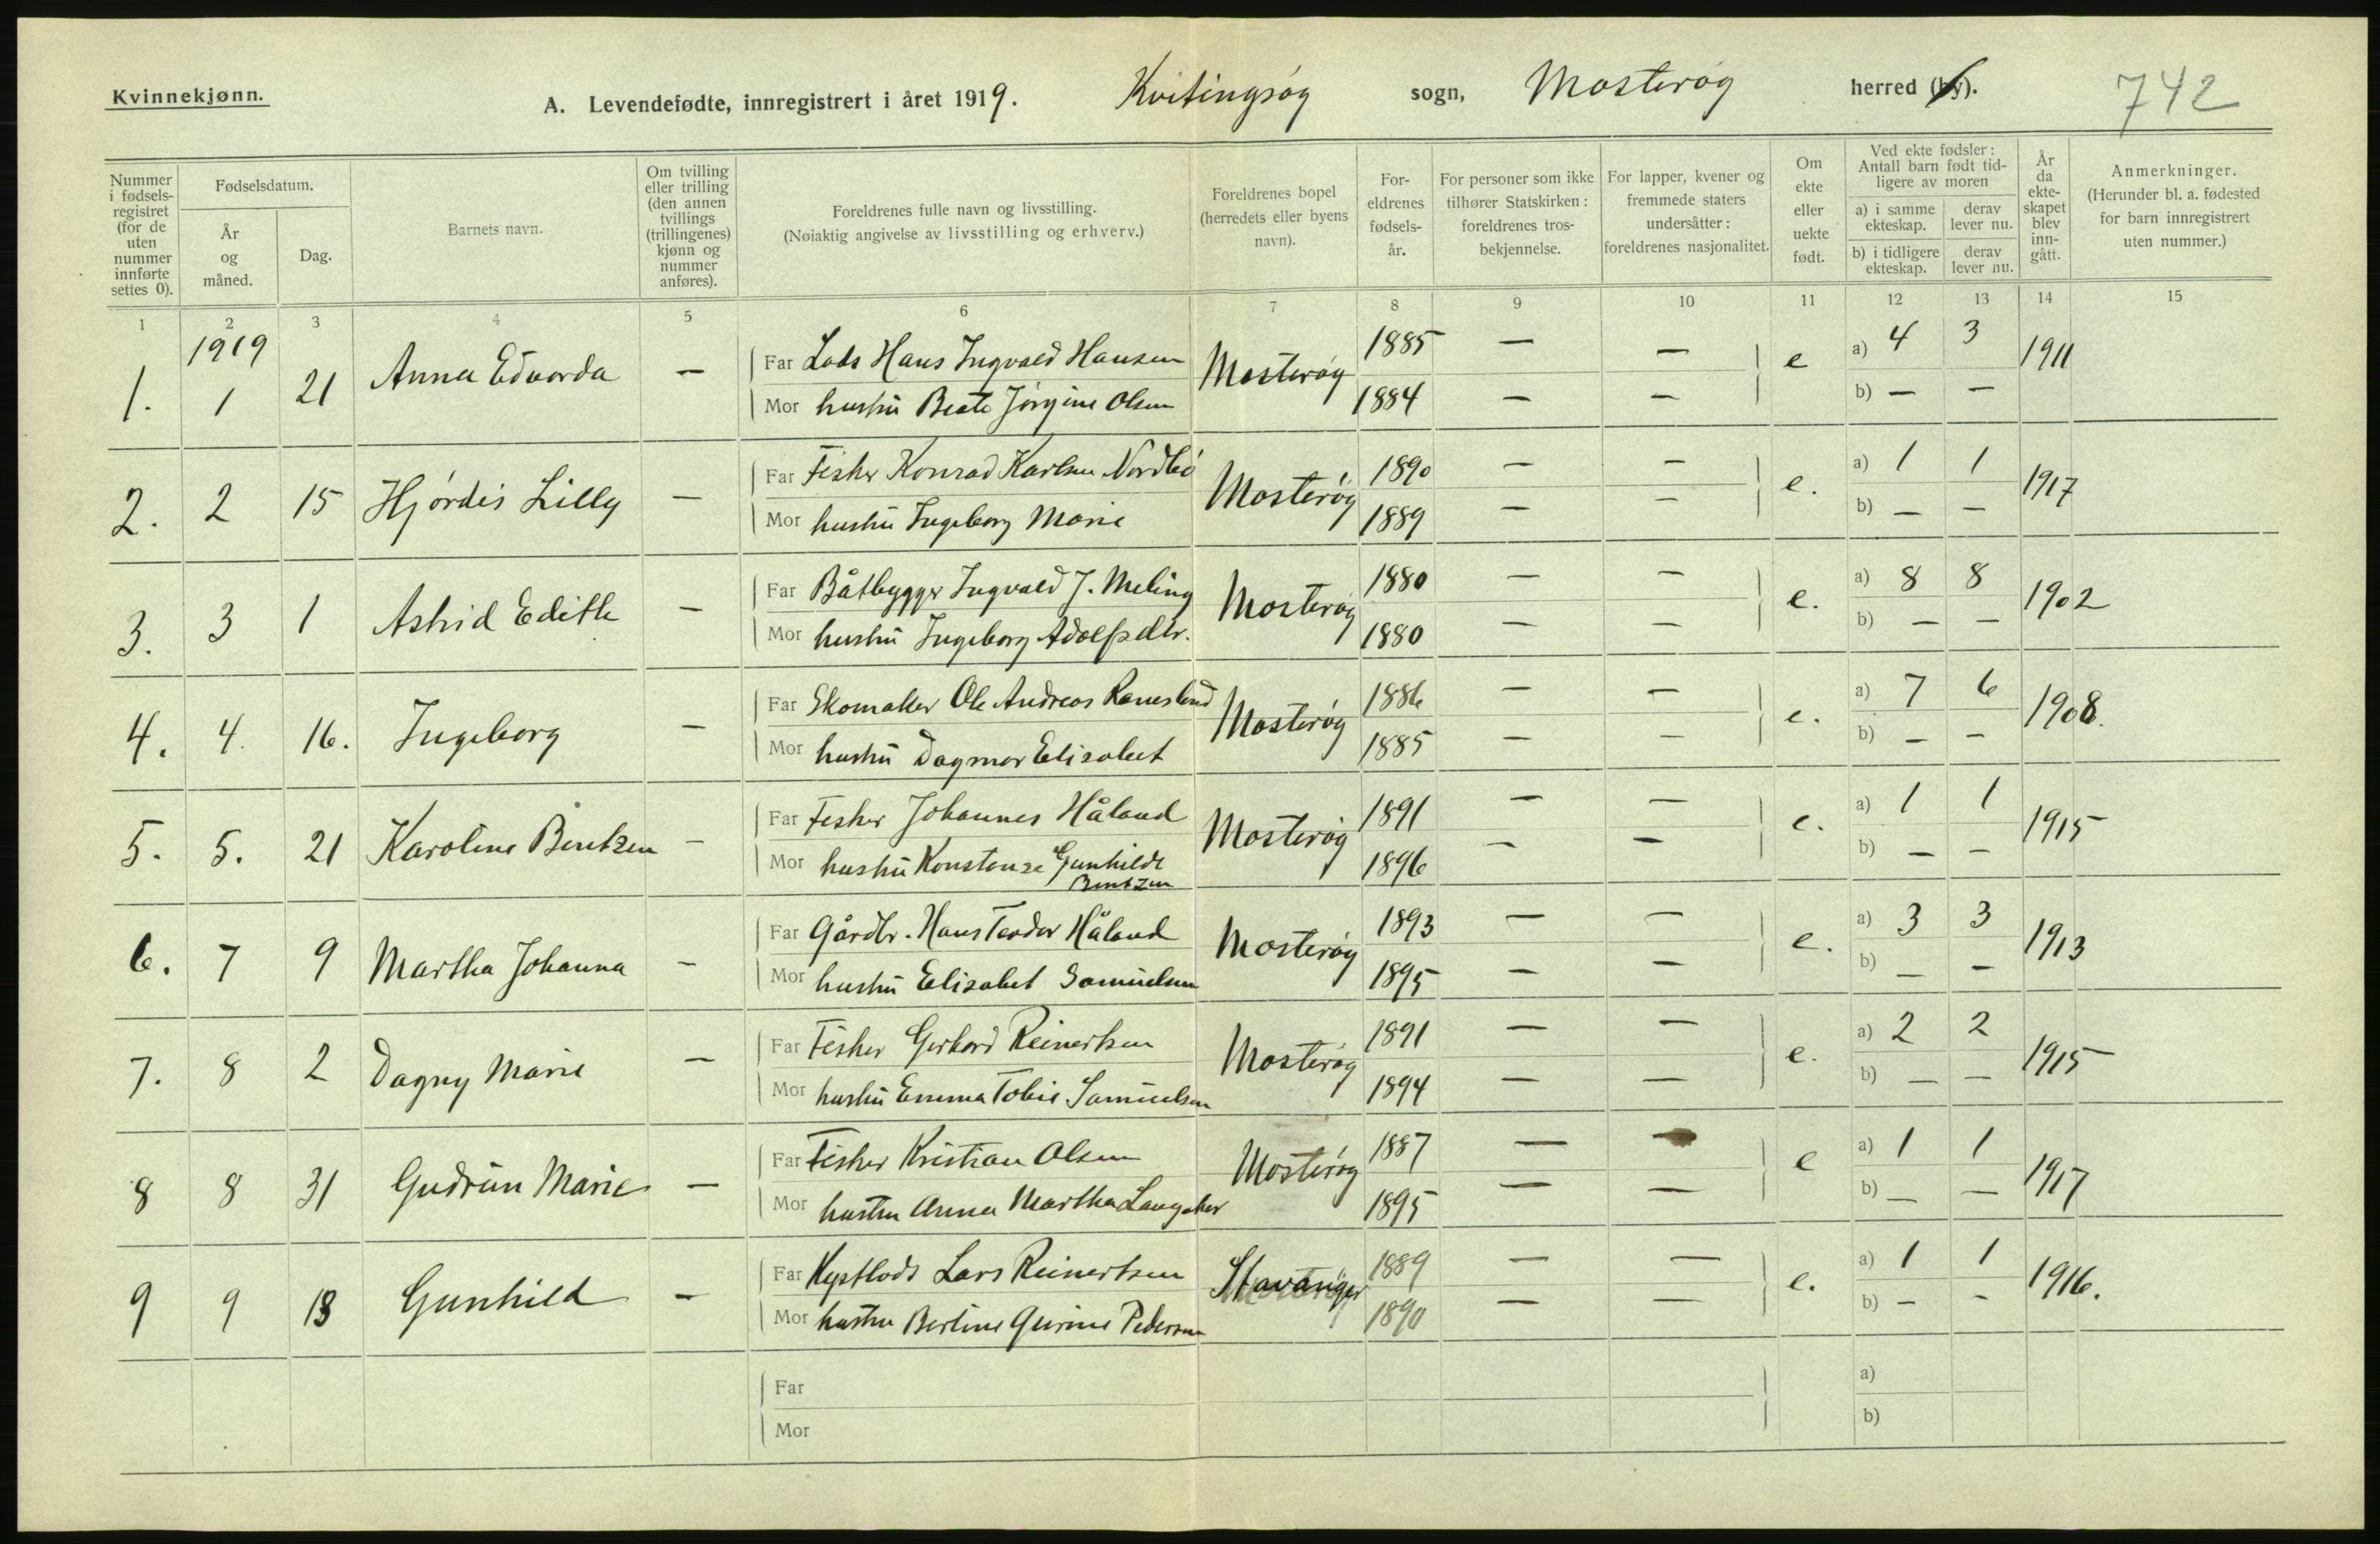 Kvinnekjønn.
A. Levendefødte, innregistrert i året 1919. Kvitingsøy sogn, Mosterøy herred (by). 742
Nummer i fødselsregistret (for de uten nummer innførte settes 0).
Fødselsdatum.
År og måned.
Dag.
Barnets navn.
Om tvilling eller trilling (den annen tvillings (trillingenes) kjønn og nummer anføres).
Foreldrenes fulle navn og livsstilling.
(Nøiaktig angivelse av livsstilling og erhverv.)
Foreldrenes bopel (herredets eller byens navn).
Foreldrenes fødselsår.
For personer som ikke tilhører Statskirken: foreldrenes trosbekjennelse.
For lapper, kvener og fremmede staters undersåtter: foreldrenes nasjonalitet.
Om ekte eller uekte født.
Ved ekte fødsler: Antall barn født tidligere av moren
a) i samme ekteskap. derav lever nu.
b) i tidligere ekteskap. derav lever nu.
År da ekteskapet blev inngått.
Anmerkninger.
(Herunder bl. a. fødested for barn innregistrert uten nummer.)
1 2 3 4 5 6 7 8 9 10 11 12 13 14 15
1919
1. 1 21 Anna Edvarda — Far Lods Hans Ingvald Hansen Mosterøy 1885 — — e a) 4 3 1911
Mor hustru Beate Jørgine Olsen 1884 — — b) — —
2. 2 15 Hjørdis Lilly — Far Fisker Konrad Karlsen Nordbø Mosterøy 1890 — — e. a) 1 1 1917
Mor hustru Ingeborg Marie 1889 — — b) — —
3. 3 1 Astrid Edith — Far Båtbygger Ingvald J. Meling Mosterøy 1880 — — e. a) 8 8 1902
Mor hustru Ingeborg Adolfsdtr. 1880 — — b) — —
4. 4. 16. Ingeborg — Far Skomaker Ole Andreas Ramsland Mosterøy 1886 — — e. a) 7 6 1908.
Mor hustru Dagmar Elisabet 1885 — — b) — —
5. 5. 21 Karoline Bentzen — Far Fisker Johannes Håland Mosterøy 1891 — — e. a) 1 1 1915
Mor hustru Konstanze Gunhilde Bentzen 1896 — — b) — —
6. 7 9 Martha Johanna — Far Gårdbr. Hans Teodor Håland Mosterøy 1893 — — e. a) 3 3 1913
Mor hustru Elisabet Samuelsen 1895 — — b) — —
7. 8 2 Dagny Marie — Far Fisker Gerhard Reinertsen Mosterøy 1891 — — e. a) 2 2 1915
Mor hustru Emma Tobie Samuelsen 1894 — — b) — —
8 8 31 Gudrun Marie — Far Fisker Kristian Olsen Mosterøy 1887 — — e a) 1 1 1917
Mor hustru Anna Martha Langaker 1895 — — b) — —
9 9 18 Gunhild — Far Kystlods Lars Reinertsen Stavanger 1889 — — e. a) 1 1 1916.
Mor hustru Bertine Gurine Pedersen 1890 — — b) — —
Far a)
Mor b)